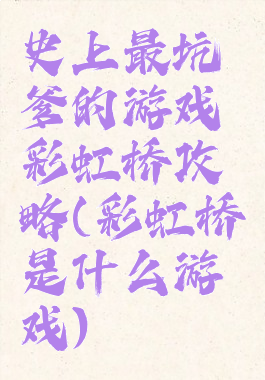 史上最坑
爹的游戏
彩虹桥攻
略(彩虹桥
是什么游
戏)